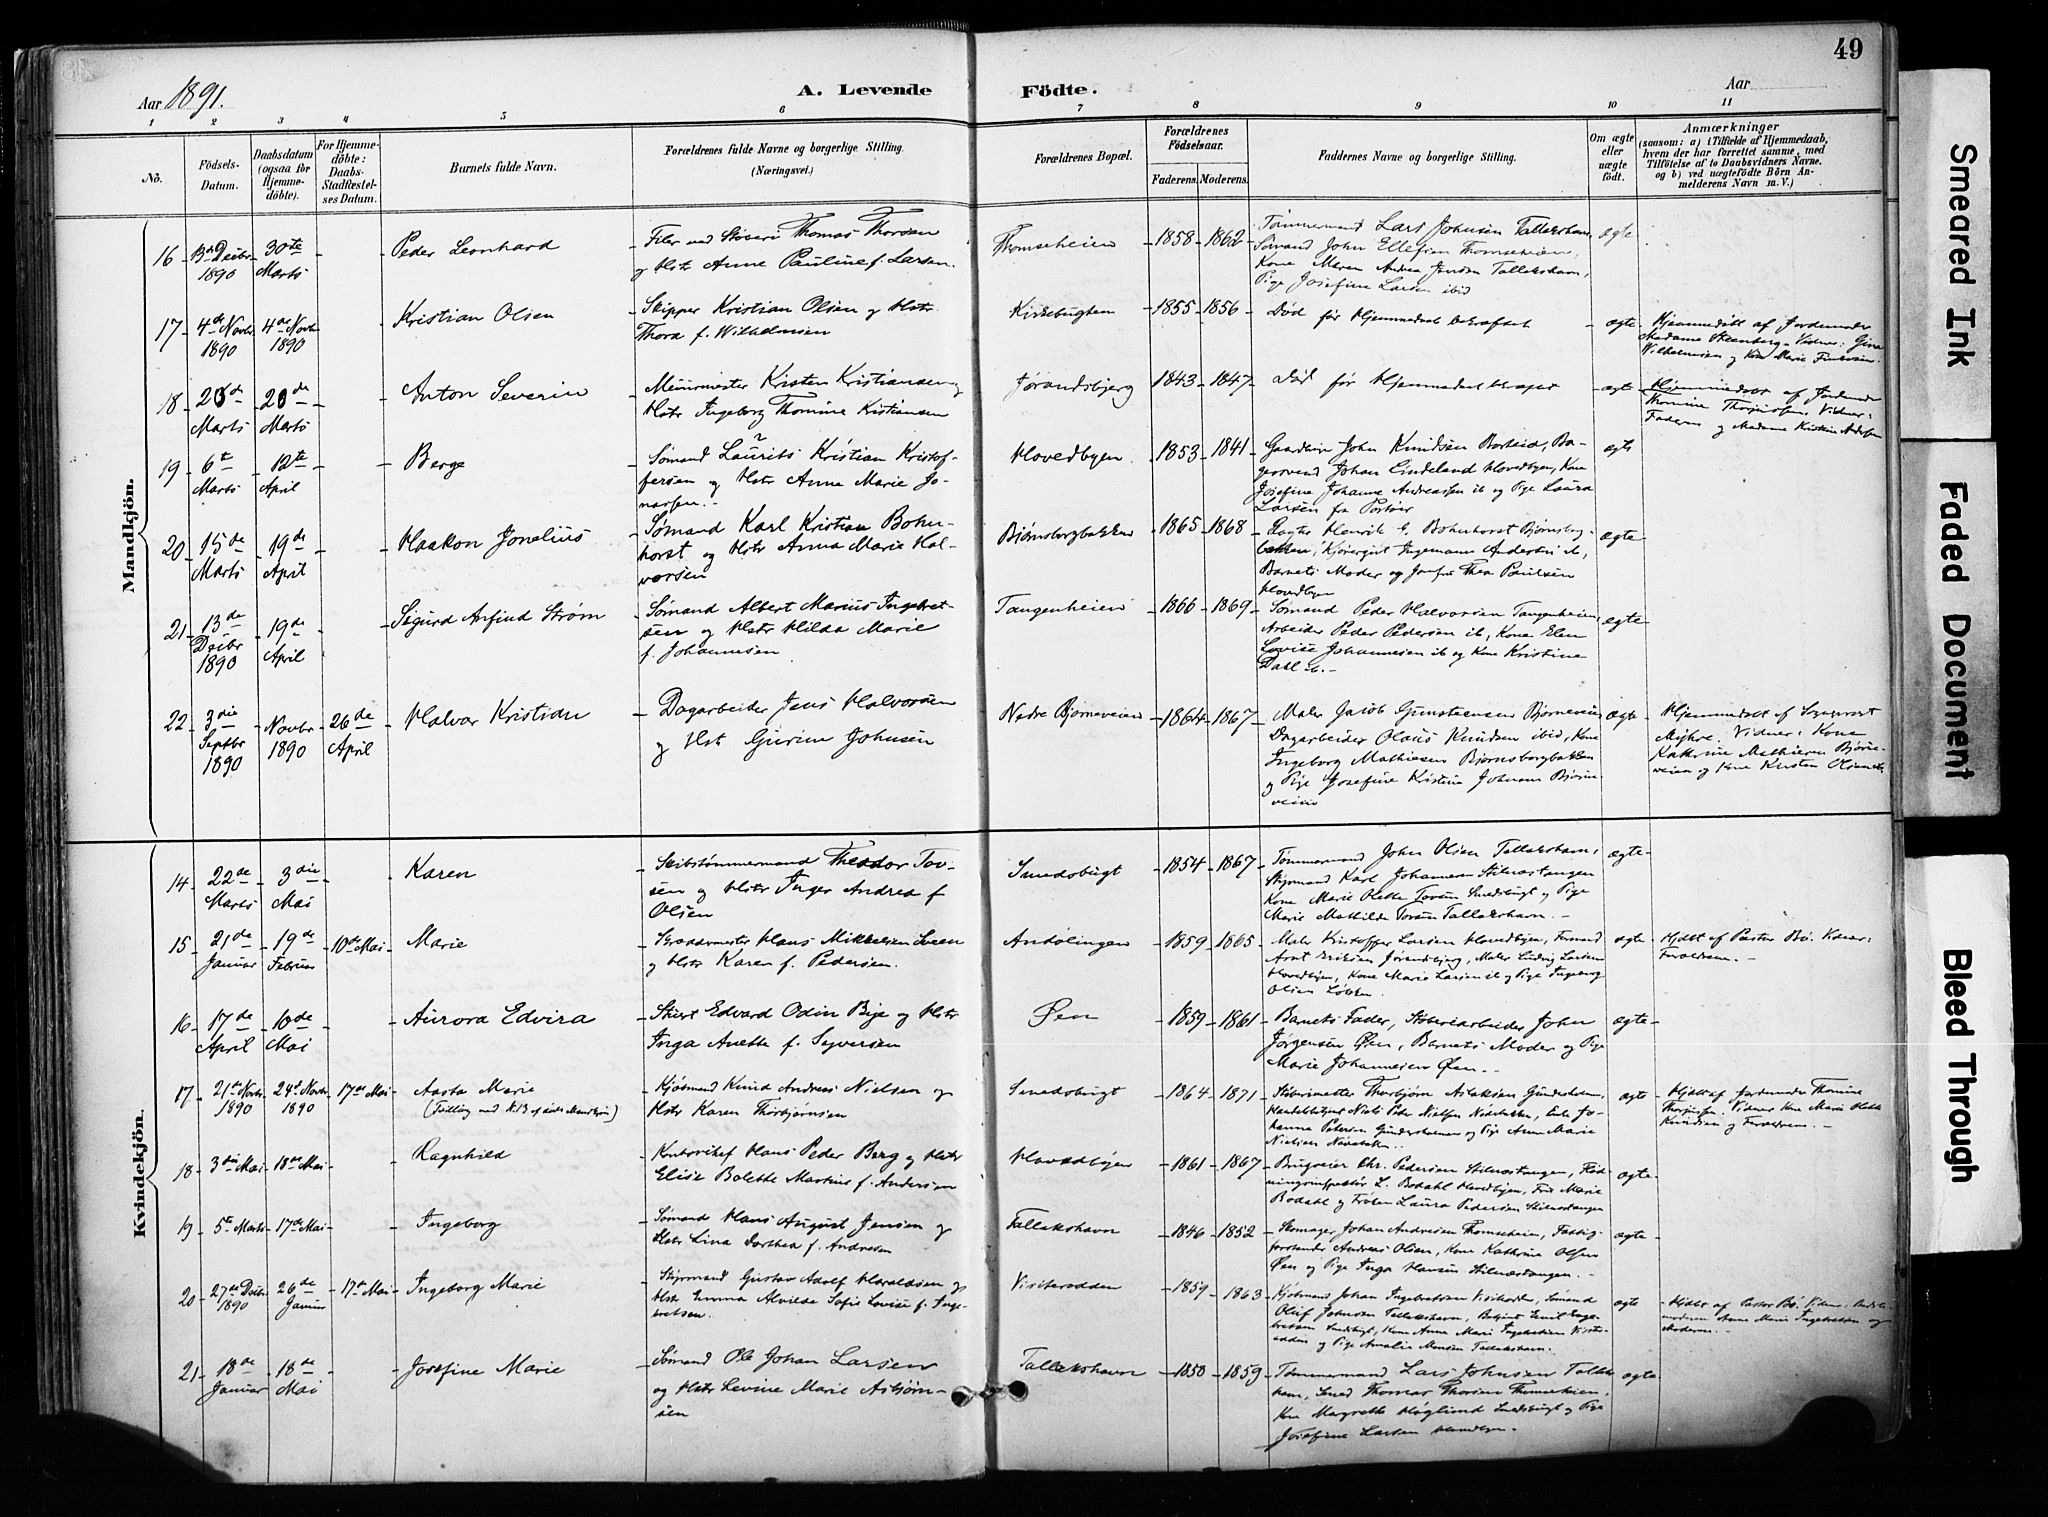 49
Aar 1891.
A. Levende
Födte.
Aar
1 2 3 4 5 6 7 8 9 10 11
No.
Födsels-Datum.
Daabsdatum (ogsaa för Hjemmedöbte).
For Hjemmedöbte: Daabs-Stadfæstelses Datum.
Barnets fulde Navn.
Forældrenes fulde Navne og borgerlige Stilling.
(Næringsvei.)
Forældrenes Bopæl.
Forældrenes Födselsaar.
Faderens. Moderens.
Faddernes Navne og borgerlige Stilling.
Om ægte eller uægte födt.
Anmærkninger
(saasom: a) i Tilfælde af Hjemmedaab, hvem der har forrettet samme, med Tilföielse af to Daabsvidners Navne, og b) ved uægtefödte Börn Anmelderens Navn m. V.)
Mandkjön.
16 13de Decbr 1890 30te Marts Peder Leonhard
Filer ved Støberi Thomas Thorsen
og Hstr Anne Pauline f. Larsen.
Thomseheien 1858 1862
Tømmermand Lars Johnsen Tallakshavn,
Sømand John Ellefsen Thomseheien,
Kone Maren Andrea Jensen Tallakshavn,
Pige Josefine Larsen ibid
ægte
17 4de Novbr 1890 4de Novbr 1890 Kristian Olsen
Skipper Kristian Olsen og Hstr
Thora f. Wilhelmsen
Kirkebugten 1855 1856
Død før Hjemmedaab bekræftet
ægte
Hjemmedøbt af Jordemoder
Madame Steenberg. Vidner: Gina
Wilhelmsen og Kone Marie
18 20de Marts 20de Marts Anton Severin
Murmester Kristen Kristiansen og
Hstr Ingeborg Thomine Kristiansen
Jørandsbjerg 1843 1847
Død før Hjemmedaab
ægte
Hjemmedøbt af Jordemoder
Thomine Vidner:
Faderen og Madame
19 6te Marts 12te April Berge
Sømand Laurits Kristian Kristof-
fersen og Hstr Anne Marie Jo-
nassen.
Hovedbyen 1853 1841
John Knudsen
Johan Lindeland Hovedbyen, Kone
Josefine Johanne Andreassen ib og Pige Laura
Larsen fra Portør
ægte
20 15de Marts 19de April Haakon Jonelius
Sømand Karl Kristian Bohn-
horst og Hstr Anna Marie Hal-
vorsen
Bjørnsborgbakken 1865 1868
Henrik G. Bohnhorst Bjørnsborg-
bakken, Ingemann Andersen ib,
Barnets Moder og Jomfru Thea Paulsen
Hovedbyen
ægte
21 13de Decbr 1890 19de April Sigurd Arfind Strøm
Sømand Albert Marius Ingebret-
sen og Hstr Hilda Marie
f. Johannesen
Tangenheien 1866 1869
Sømand Peder Halvorsen Tangenheien,
Arbeider Peder Pedersen ib, Kone Elen
Lovise Johannesen ib og Kone Kristine
Dahl ib.
ægte
22 3die Septbr 1890 Novbr 1890 26de April Halvor Kristian
Dagarbeider Jens Halvorsen
og Hst Gurine Johnsen
Nedre Bjørneveien 1864 1867
Maler Jacob Gunsteensen Bjørneveien
Dagarbeider Olaus Knudsen ibid, Kone
Ingeborg Mathiesen Bjørnsborgbakken
og Pige Josefine Kristine Johnsen Bjørne-
veien
ægte
Hjemmedøbt af Sogneprest
Myhre. Vidner: Kone
Kathrine Mathiesen Bjørne-
veien og Kone Kirsten
Kvindekjön.
14 22de Marts 3die Mai Karen
Skibstømmermand Theodor Tov-
sen og Hstr Inger Andrea f
Olsen
Smedsbugt 1854 1867
Tømmermand John Olsen Tallakshavn,
Styrmand Karl Johannesen Stilnæstangen
Kone Marie Olette Tovsen Smedsbugt og Pige
Marie Mathilde Tovsen Tallakshavn.
ægte
15 21de Januar 19de Februar 10de Mai Marie
Skræddermester Hans Mikkelsen Sveen
og Hstr Karen f. Pedersen.
Andølingen 1859 1865
Maler Kristoffer Larsen Hovedbyen,
Arnt Eriksen Jørandsbjerg, Maler Ludvig Larsen
Hovedbyen, Kone Marie Larsen ib og Pige Ingeborg
Olsen Løkken.
ægte
Hjdøbt af Pastor Bø. Vidner:
Forældrene.
16 17de April 10de Mai Aurora Edvira
Edvard Odin Bye og Hstr
Inga Anette f. Syversen
Øen 1859 1861
Barnets Fader, Støberiarbeider John
Jørgensen Øen, Barnets Moder og Pige
Marie Johannesen Øen.
ægte
17 21de Novbr 1890 24de Novbr 1890 17de Mai Aasta Marie
(Tvilling med No 13 af Mandkjøn)
Kjøbmand Knud Andreas Nielsen og
Hstr Karen Thorbjørnsen
Smedsbugt 1864 1871
Støberimester Thorbjørn Aslaksen Gundersholmen,
Niels Peder Nielsen Enke Jo-
hanne Petersen Gundersholmen og Pige Anne Marie
Nielsen
ægte
Hjdøbt af Jordemoder Thomine
Vidner Kone Marie
Knudsen og Forældrene.
18 3die Mai 18de Mai Ragnhild
Kontorchef Hans Peder Berg og Hstr
Elise Bolette Martine f. Andersen
Hovedbyen 1861 1867
Brugseier Chr. Pedersen Stilnæstangen,
L. Bodahl Hovedbyen, Fru Marie
Bodahl og Frøken Laura Pedersen Stilnæstangen
ægte
19 5te Marts 17de Mai Ingeborg
Sømand Hans August Jensen og
Hstr Lina Dorthea f. Andresen
Tallakshavn 1846 1852
Skomager Johan Andresen Thomseheien, Fattig-
forstander Andreas Olsen, Kone Kathrine Olsen
Øen og Pige Inga Hansen Stilnæstangen.
ægte
20 27de Decbr 1890 26de Januar 17de Mai Ingeborg Marie
Styrmand Gustav Adolf Haraldsen og
Hstr Emma Alvilde Sofie Lovise f. Inge-
bretsen.
Visiterodden 1859 1863
Kjøbmand Johan Ingebretsen Visiterodden, Sømand
Oluf Johnsen Tallakshavn, Emil Inge-
bretsen Smedsbugt, Kone Anne Marie Ingebretsen Visiter-
odden og Pige Amalie Monsen Tallakshavn.
ægte
Hjdøbt af Pastor Bø. Vidner:
Anne Marie Ingebretsen og
Moderen.
21 18de Januar 18de Mai Josefine Marie
Sømand Ole Johan Larsen
og Hstr Levine Marie Asbjørn-
sen
Tallakshavn 1850 1859
Tømmermand Lars Johnsen Tallaks-
havn, Smed Thomas Thorsen Thomseheien,
Kone Magrethe Høglund Smedsbugt og Pige
Josefine Larsen Hovedbyen.
ægte
Smeared Ink
Faded Document
Bleed Through